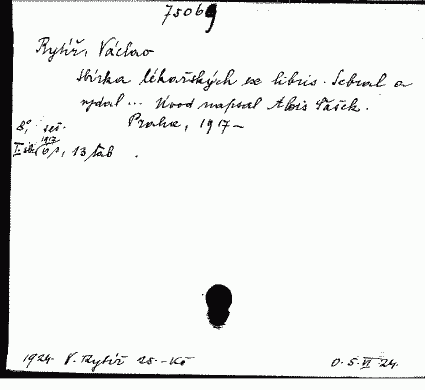 75069
Rytíř, Václav
Sbírka lékařských ex libris. Sebral a
vydal ... Úvod napsal Alois Rašek.
Praha, 1917-
8°, seš.
1917
I. 6 s, 13 tab.
1924 V. Rytíř 25.-Kč
O. 5. VI 24.